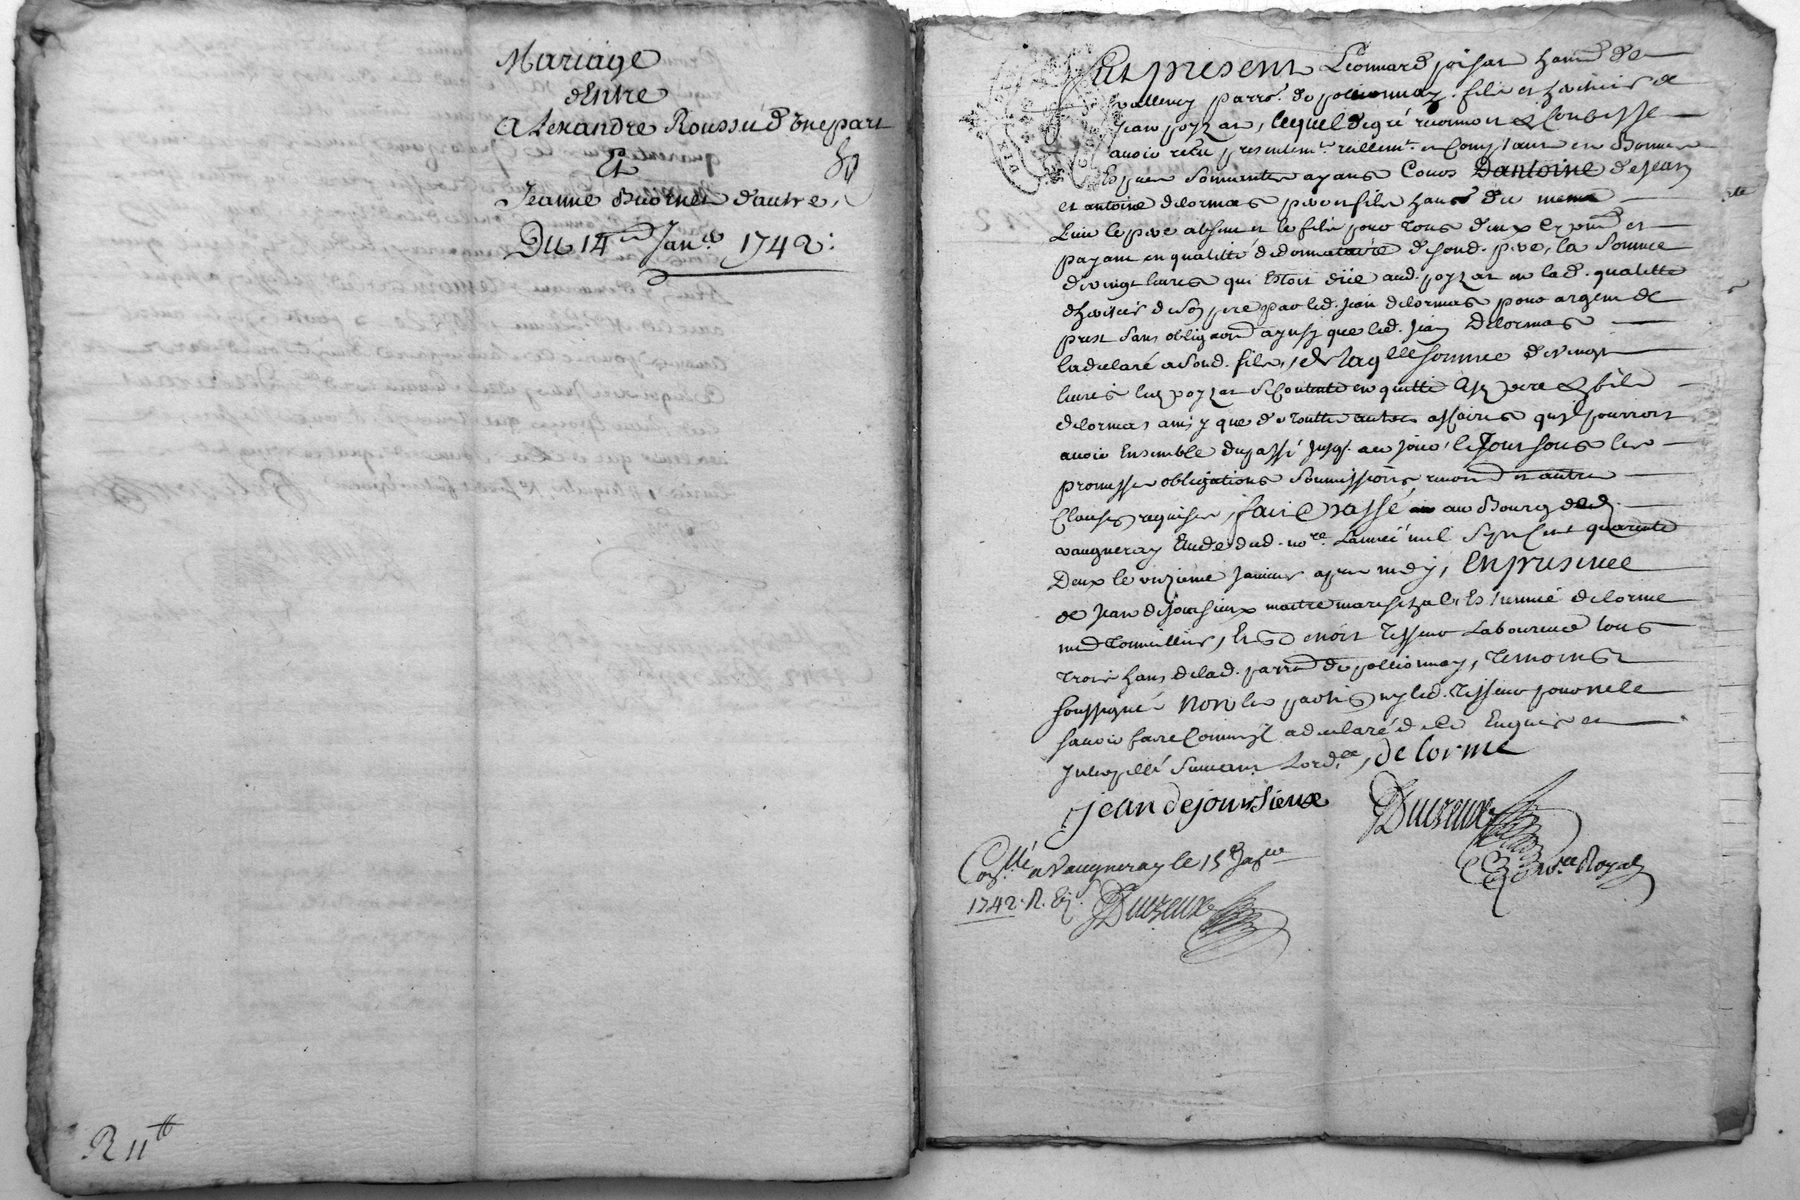 Mariage
d'Entre
Alexandre Roussu d'une part
Et
Jeanne d'autre,
Du 14me Janer 1742:
R 11tt
Est present Leonnard poisat hand de
parrs. de pollionnay, fils et heritier de
Jean poyzat, lequel de gré reconnoit & Confesse
avoir reçu presentemt reellemt et Comptant en Bonnes
Especes Sonnantes ayans Cours Dantoine de Jean
et antoine delormas pere et fils hans du mesme
Lieu le pere absent et le fils pour tous deux et
payant en qualitté de donnataire de sond. pere, la Somme
de vingt livres qui Estoit düe aud. poyzat en lad. qualitté
d'heritier de Son pere par led. Jean delormas pour argent de
prest Sans obligaond ainsy que led. Jean Delormas
la declaré a Sond. fils, de laqlle Somme de vingt
livres led poyzat Se Contente en quitte Lesd pere & fils
delormas ainsy que de toutte autres affaires quil pourroit
avoir Ensemble du passé Jusq. au Jour, le tout sous les
promesses obligations Soumissions renond et autres
Clauses requises, fait & passé au Bourg ded.
vaugneray Etude dud. nore L'année mil Sept Cent quarente
Deux le onzieme Janvier apres midy, En presence
de Jean dejoursieux maitre mareschal, Estienne delorme
md Tonnellier, Et Benoit Tisseur Laboureur tous
trois hans de lad. parrd de pollionnay, temoins
soussignés Non les parties ny led. Tisseur pour ne le
savoir faire Comme il a declaré de ce Enquis et
Interpellé Suivant Lordce, de lorme
jean dejoursieux Ducreux
nore Royal
Conllé a Vaugneray le 15e Janer
1742. R. Ducreux